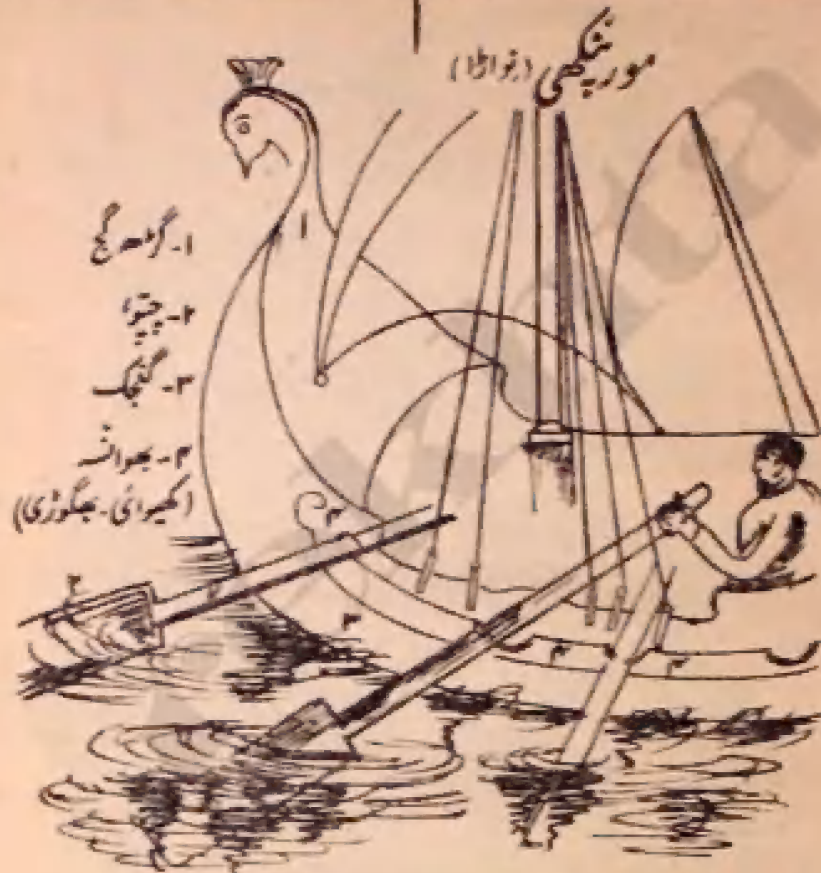 مور پنکھی (نواڑا)
۱- گڑھ گج
۲- چپّو
۳- گنجک
۴- بھوانہ
(کھیوائی- بھگوڑی)
۱
۲
۳
۳
۴
۴